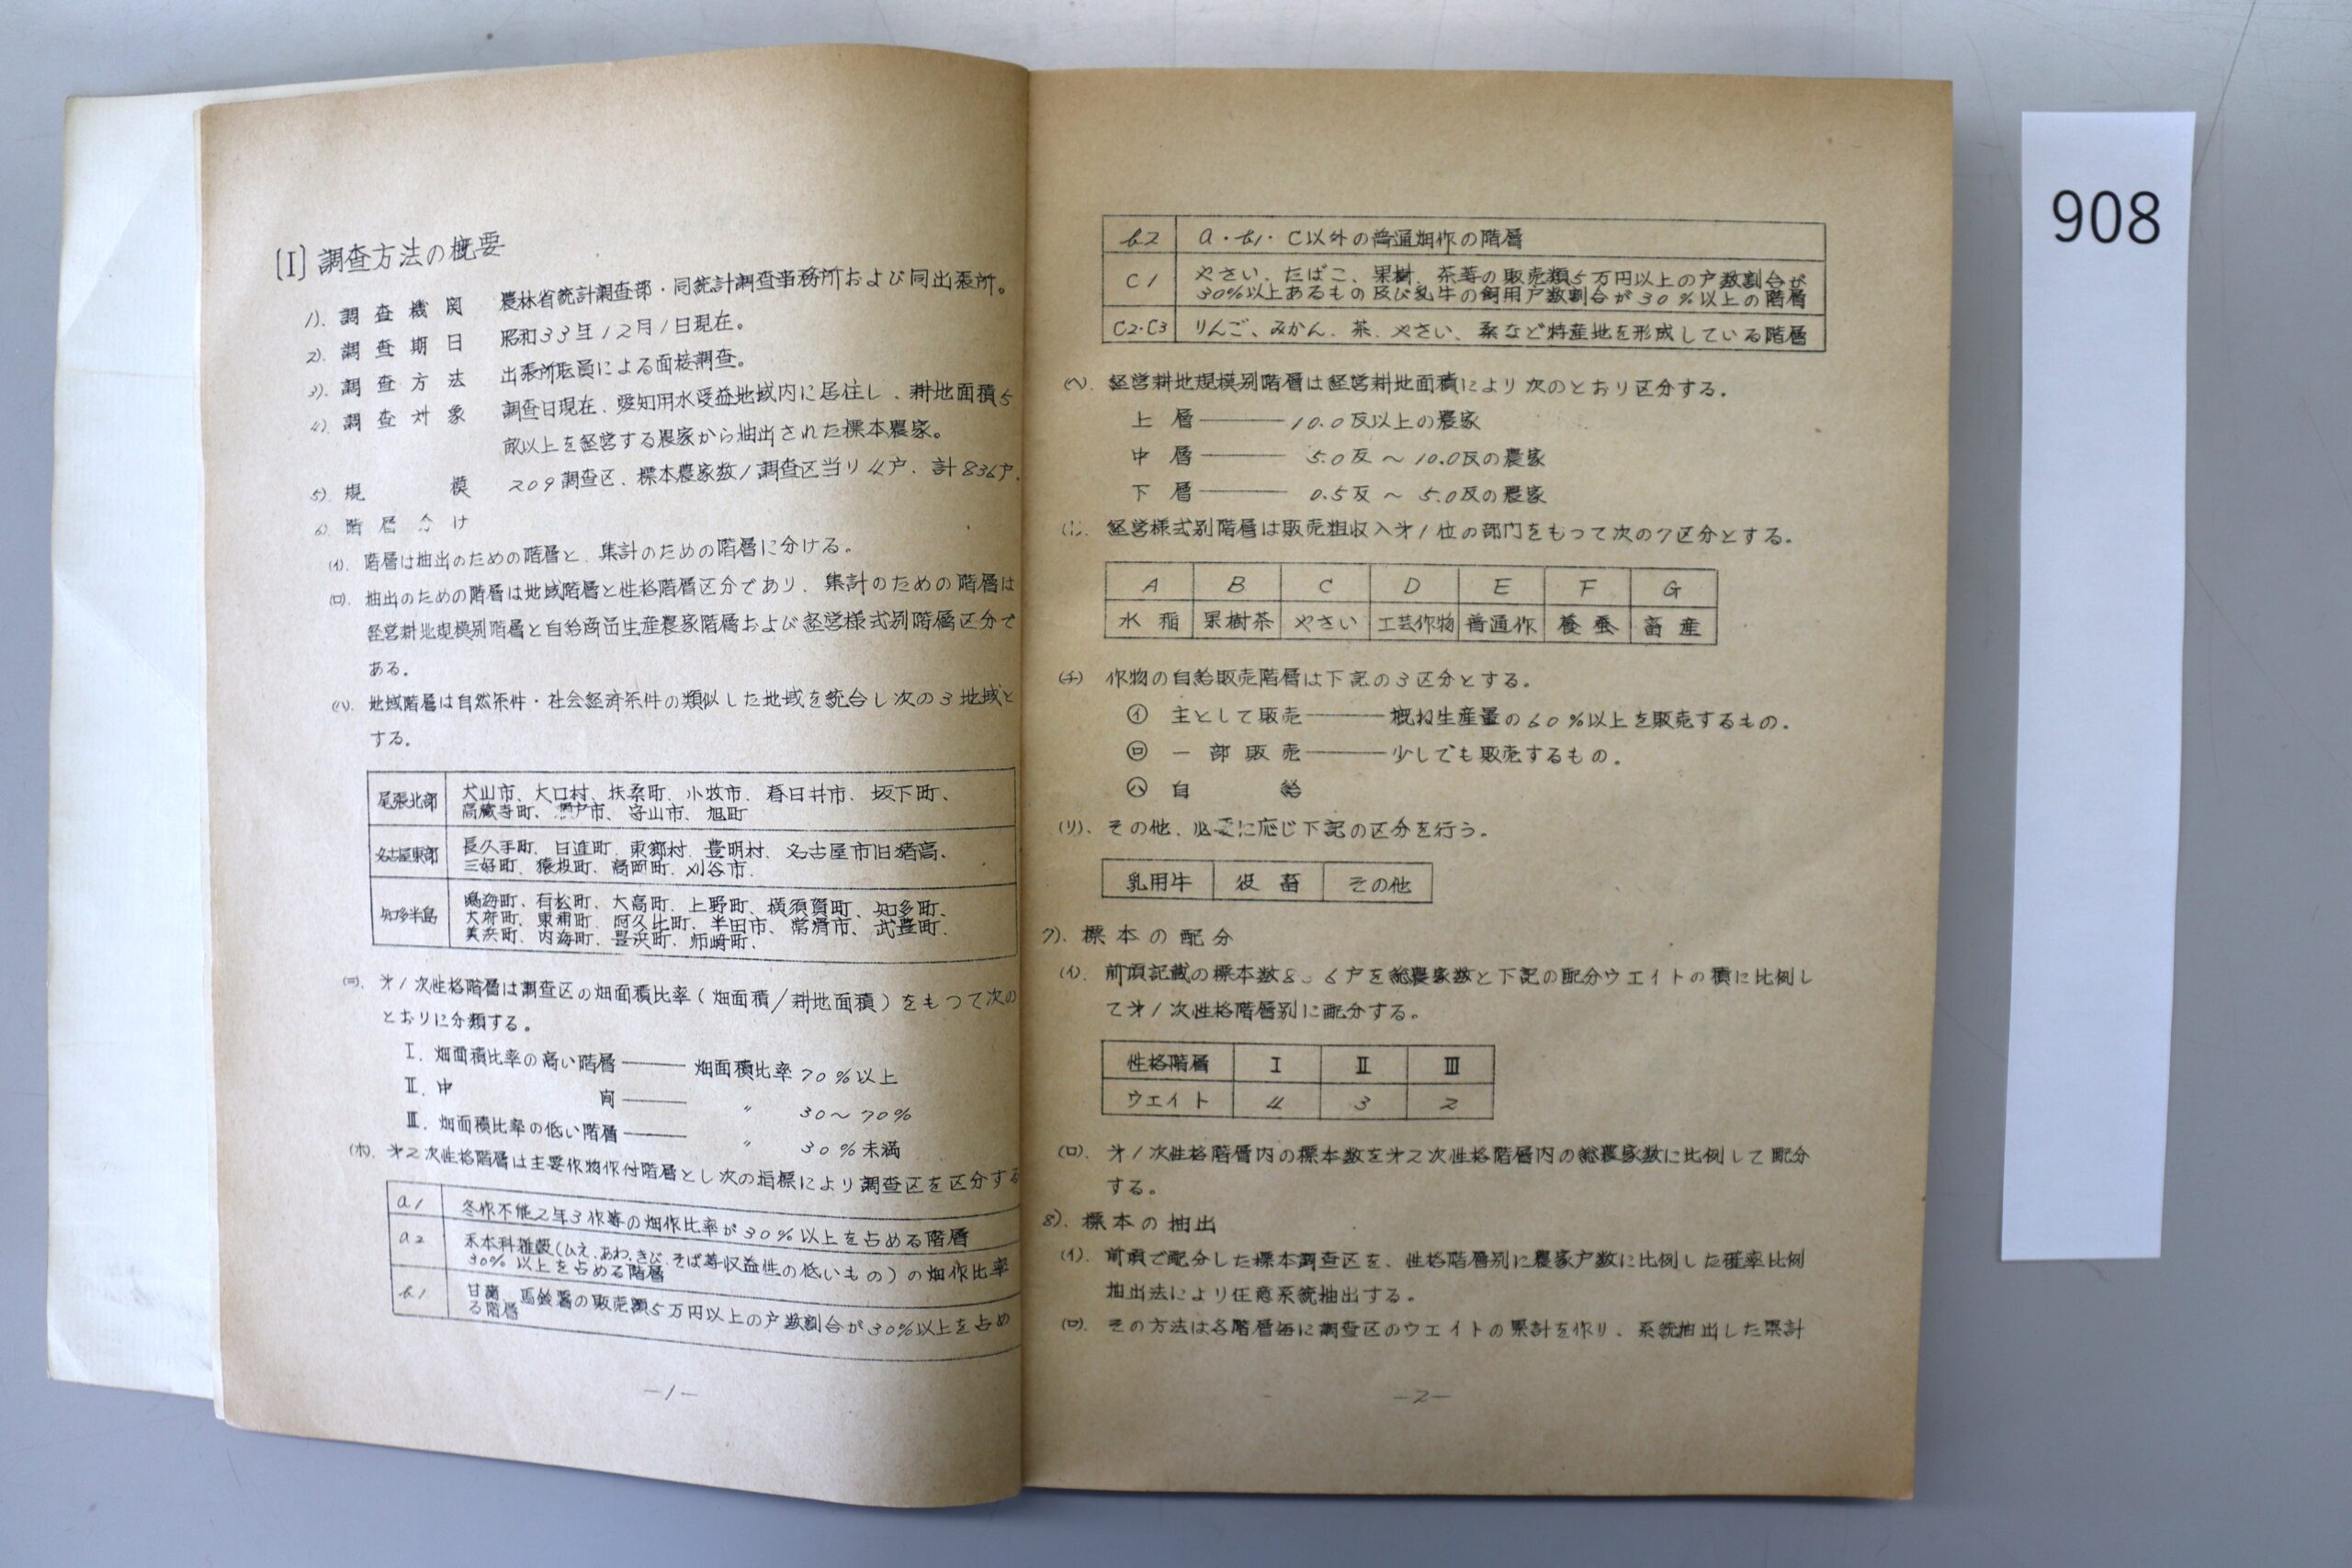 [I] 調査方法の概要
1). 調査機関 農林省統計調査部・同統計調査事務所および同出張所。
2). 調査期日 昭和33年12月1日現在。
3). 調査方法 出張所職員による面接調査。
4). 調査対象 調査日現在、愛知用水受益地域内に居住し、耕地面積5
畝以上を経営する農家から抽出された標本農家。
5). 規模 209調査区、標本農家数1調査区当り4戸、計836戸.
6). 階層分け
(イ). 階層は抽出のための階層と、集計のための階層に分ける。
(ロ). 抽出のための階層は地域階層と性格階層区分であり、集計のための階層は
経営耕地規模別階層と自給商品生産農家階層および経営様式別階層区分で
ある。
(ハ). 地域階層は自然条件・社会経済条件の類似した地域を統合し次の3地域と
する。
尾張北部 犬山市、大口村、扶桑町、小牧市、春日井市、坂下町、
高蔵寺町、瀬戸市、守山市、旭町
名古屋東部 長久手町、日進町、東郷村、豊明村、名古屋市旧猪高、
三好町、猿投町、高岡町、刈谷市.
知多半島 鳴海町、有松町、大高町、上野町、横須賀町、知多町、
大府町、東浦町、阿久比町、半田市、常滑市、武豊町、
美浜町、内海町、豊浜町、師崎町、
(ニ). 才1次性格階層は調査区の畑面積比率(畑面積/耕地面積)をもつて次の
とおりに分類する。
I. 畑面積比率の高い階層 ―― 畑面積比率 70%以上
II. 中間 ―― 〃 30〜70%
III. 畑面積比率の低い階層 ―― 〃 30%未満
(ホ). 才2次性格階層は主要作物作付階層とし次の指標により調査区を区分する
a1 冬作不能2年3作等の畑作比率が30%以上を占める階層
a2 禾本科雑穀(ひえ、あわ、きび、そば等収益性の低いもの)の畑作比率
30%以上を占める階層
b1 甘藷 馬鈴薯の販売額5万円以上の戸数割合が30%以上を占め
る階層
―1―
b2 a・b1・C以外の普通畑作の階層
C1 やさい、たばこ、果樹、茶等の販売類5万円以上の戸数割合が
30%以上あるもの及び乳牛の飼用戸数割合が30%以上の階層
C2・C3 りんご、みかん、茶、やさい、桑など特産地を形成している階層
(ヘ). 経営耕地規模別階層は経営耕地面積により次のとおり区分する.
上層 ―― 10.0反以上の農家
中層 ―― 5.0反 〜 10.0反の農家
下層 ―― 0.5反 〜 5.0反の農家
経営様式別階層は販売粗収入才1位の部門をもつて次の7区分とする.
A B C D E F G
水稲 果樹茶 やさい 工芸作物 普通作 養蚕 畜産
(チ) 作物の自給販売階層は下記の3区分とする.
㋑ 主として販売 ―― 概ね生産量の60%以上を販売するもの.
㋺ 一部販売 ―― 少しでも販売するもの.
㋩ 自給
(リ). その他、必要に応じ下記の区分を行う.
乳用牛 役畜 その他
7). 標本の配分
(イ). 前項記載の標本数8 6戸を総農家数と下記の配分ウエイトの積に比例し
て才1次性格階層別に配分する。
性格階層 I II III
ウエイト 4 3 2
(ロ). 才1次性格階層内の標本数を才2次性格階層内の総農家数に比例して配分
する。
8). 標本の抽出
(イ). 前項で配分した標本調査区を、性格階層別に農家戸数に比例した確率比例
抽出法により任意系統抽出する。
(ロ). その方法は各階層毎に調査区のウエイトの累計を作り、系統抽出した累計
―2―
908